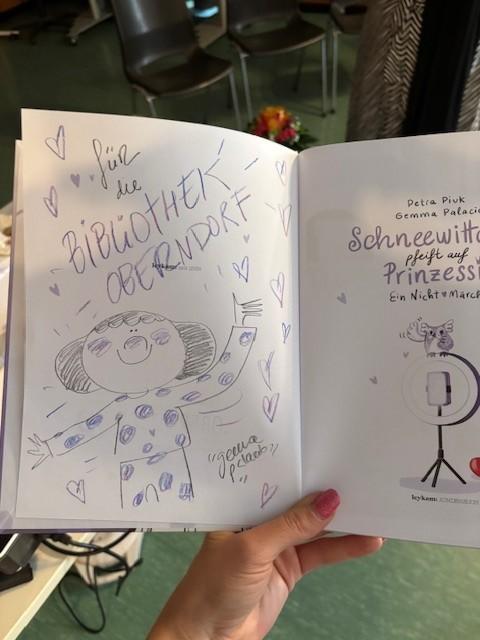 für
die
BIBLIOTHEK
OBERNDORF
"gemma
palacio"
Petra Piuk
Gemma Palacio
Schneewittc
pfeift auf
Prinzessi
Ein Nicht♥Märch
leykam: